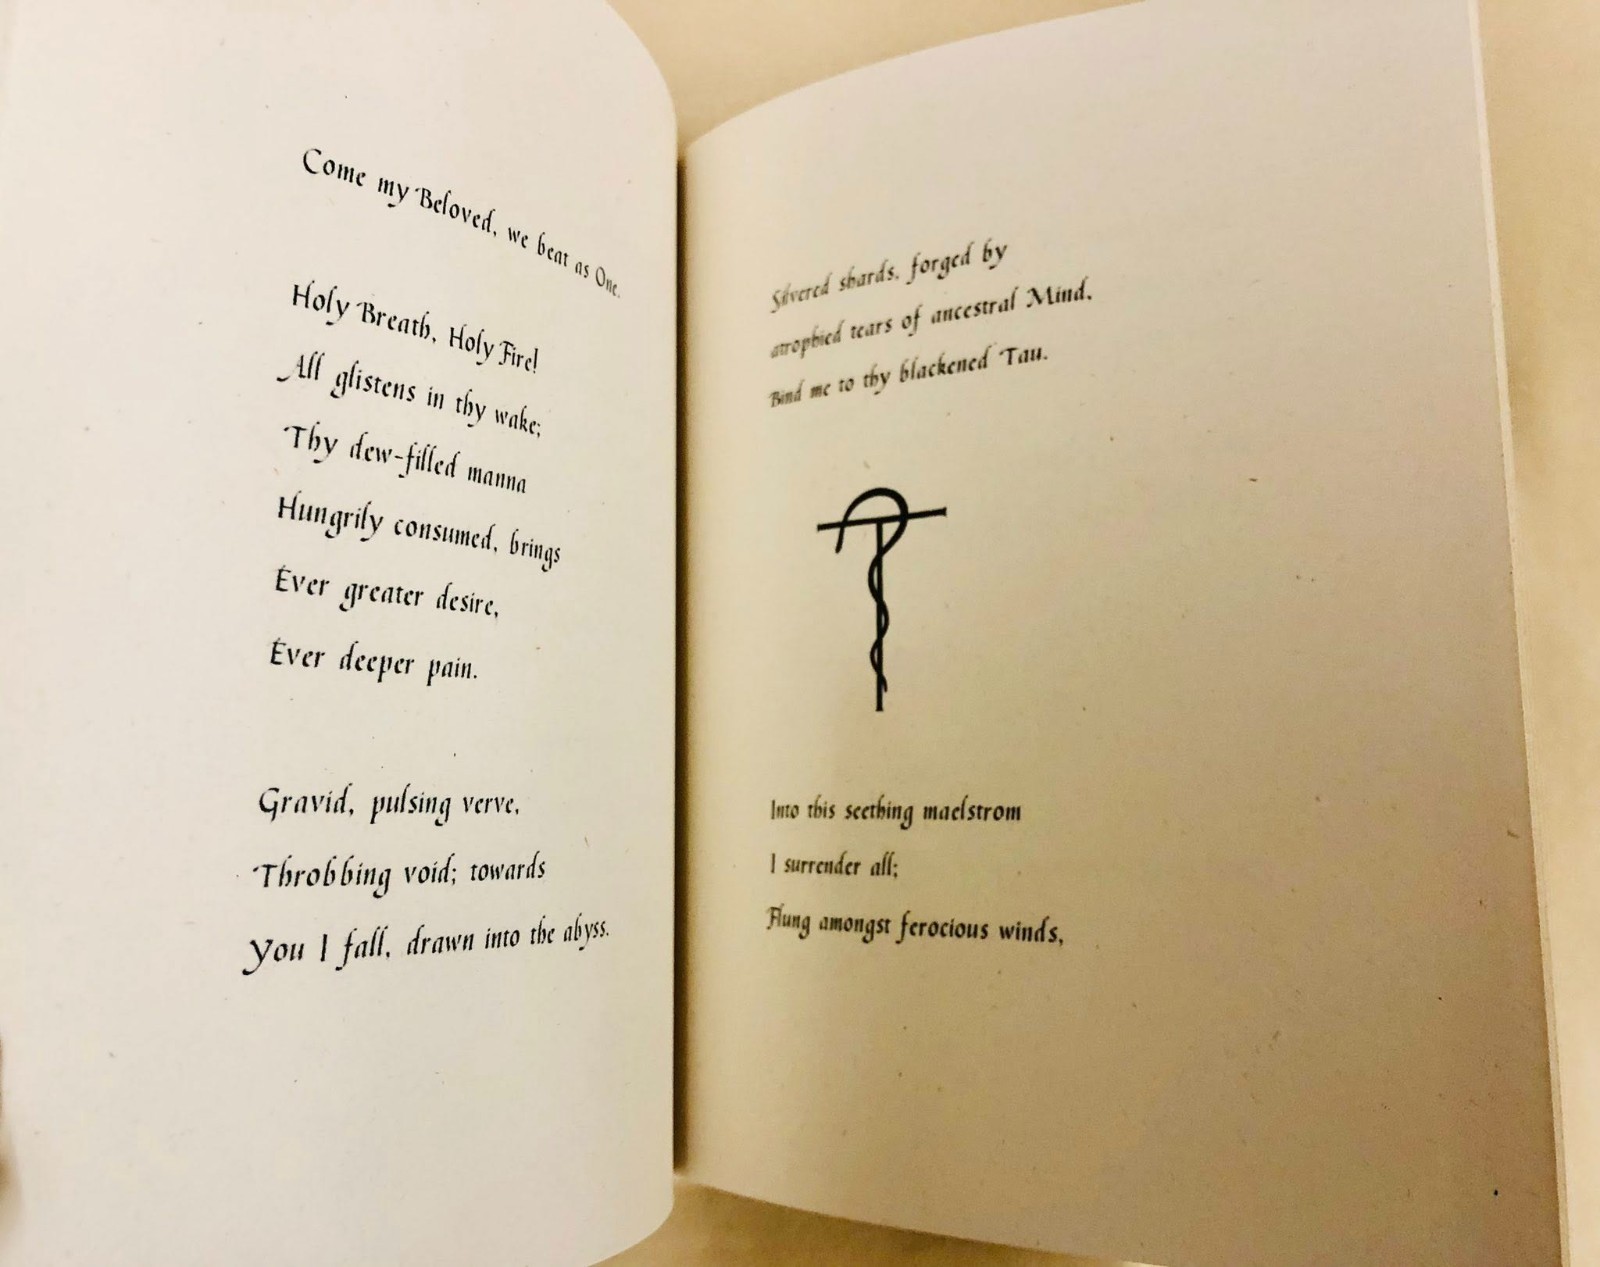 Come my Beloved, we beat as One.
Holy Breath, Holy Fire!
All glistens in thy wake;
Thy dew-filled manna
Hungrily consumed, brings
Ever greater desire,
Ever deeper pain.
Gravid, pulsing verve,
Throbbing void; towards
You I fall, drawn into the abyss.
Silvered shards, forged by
atrophied tears of ancestral Mind,
Bind me to thy blackened Tau.
Into this seething maelstrom
I surrender all;
Flung amongst ferocious winds,